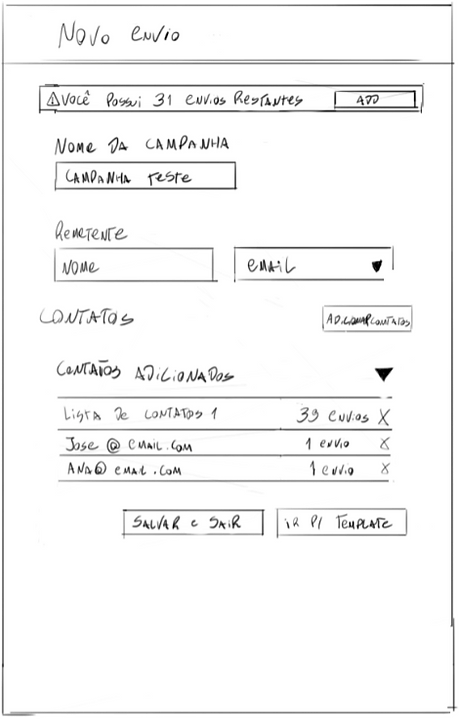 Novo envio
Você possui 31 envios restantes
ADD
Nome da campanha
Campanha teste
Remetente
Nome
email
Contatos
Adicionar contatos
Contatos adicionados
Lista de contatos 1 39 envios X
Jose@email.com 1 envio X
Ana@email.com 1 envio X
Salvar e sair
ir p/ template